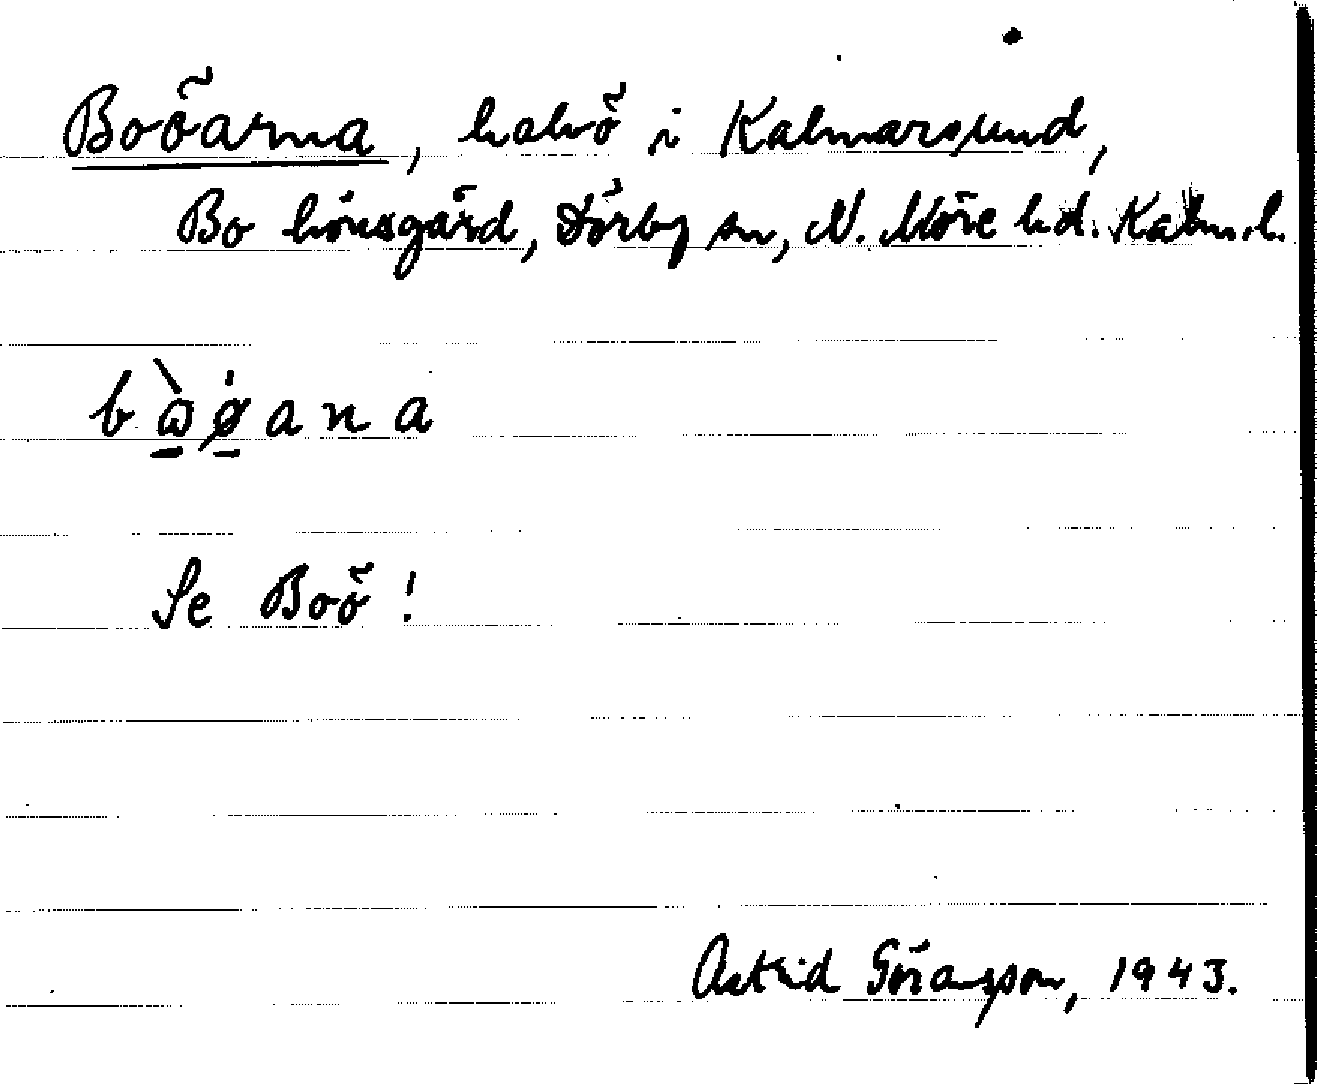 Boöarna, halvö i Kalmarsund,
Bo hönsgård, Dörby sn, N. Möre hd. Kalm. l.
bὼø̀ana
Se Boö!
Astrid Göransson, 1943.